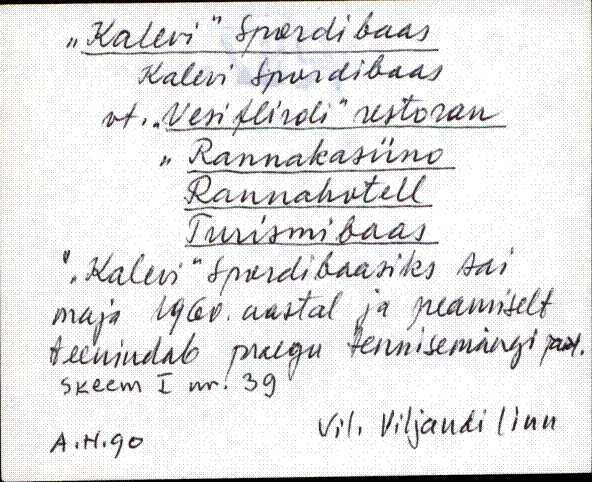 „Kalevi" Spordibaas
Kalevi Spordibaas
vt. „Vesiflirdi" restoran
„ Rannakasiino
Rannahotell
Turismibaas
„Kalevi" Spordibaasiks sai
maja 1960. aastal ja peamiselt
teenindab praegu tennisemängi
Skeem I nr. 39
A.H.90 Vil. Viljandi linn